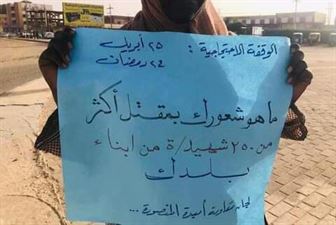 الوقفة الاحتجاجية : ٢٥ أبريل
٢٤ رمضان
ما هو شعورك بمقتل أكثر
من ٢٥٠ شهيد/ة من ابناء
بلدك
لجان مقاومة اميدة المنصورة ...